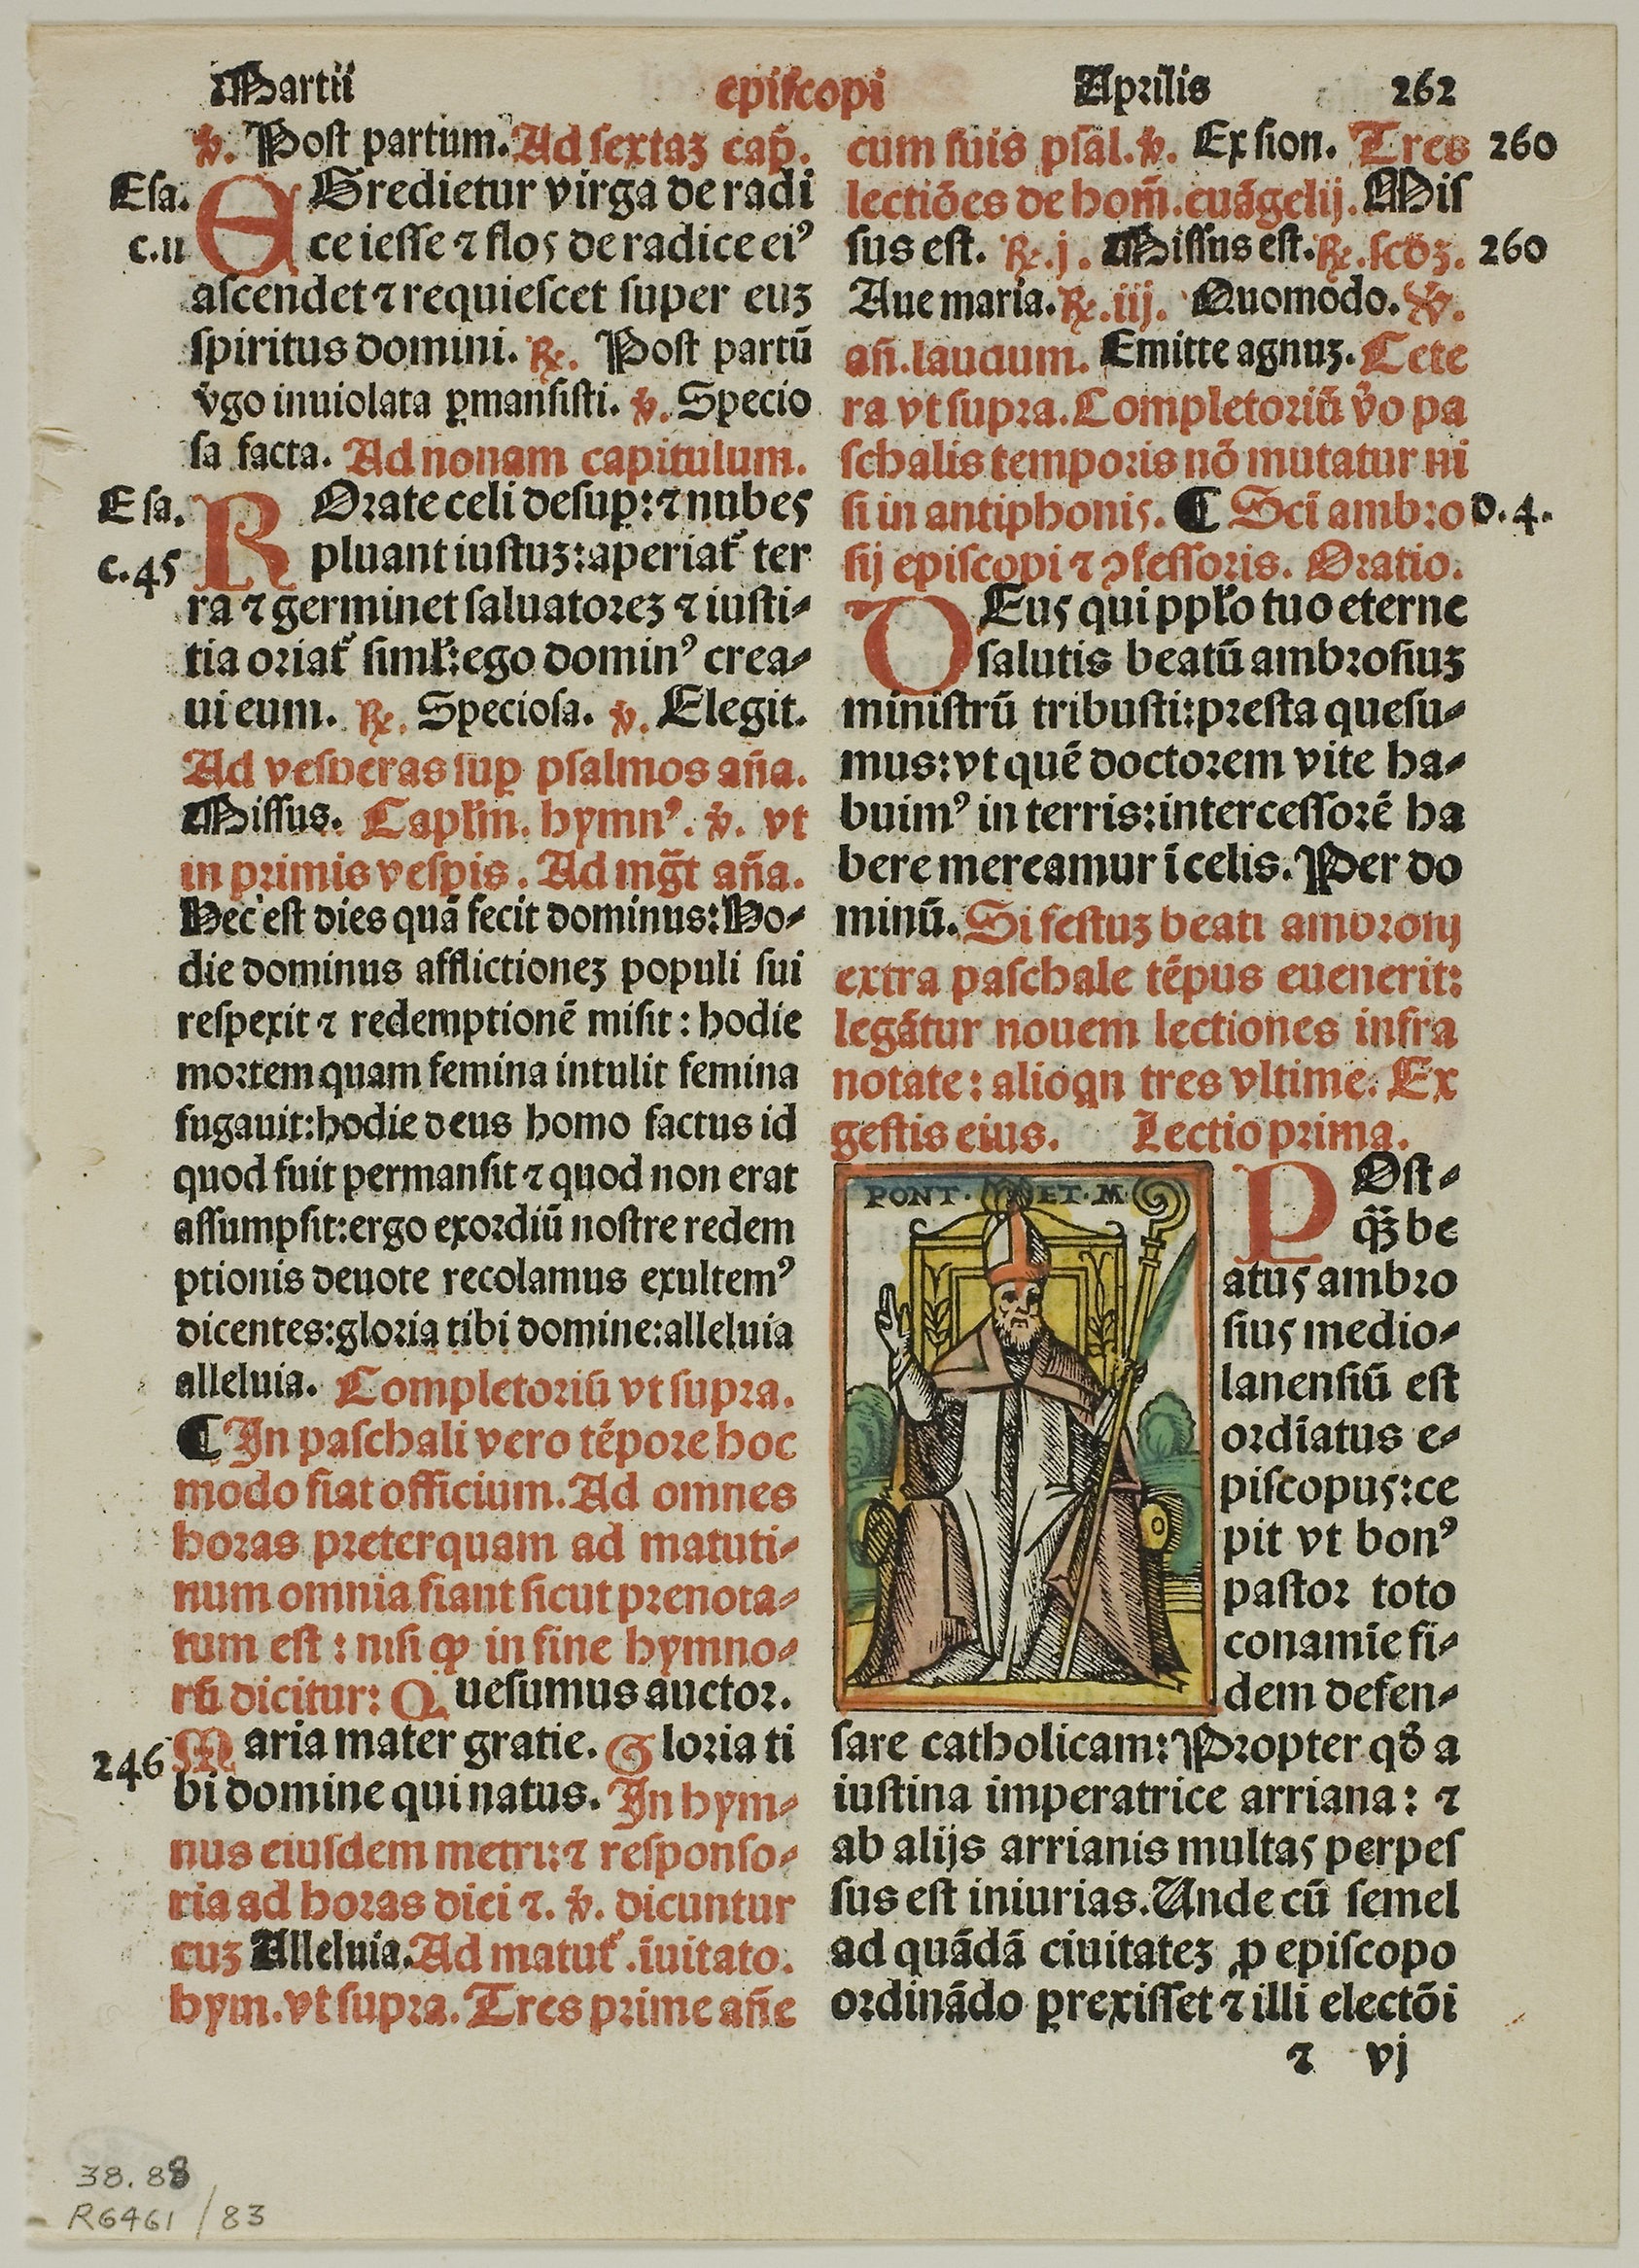 Martii episcopi Aprilis 262
℣. Post partum. Ad sextaꝫ cap̃.
Esa. EGredietur virga de radi
c.11 ce iesse ⁊ flos de radice eiꝰ
ascendet ⁊ requiescet super euꝫ
spiritus domini. ℟. Post partū
v̓go inuiolata ꝑmansisti. ℣. Specio
sa facta. Ad nonam capitulum.
Esa. ROrate celi desuꝑ: ⁊ nubes
c.45 pluant iustuꝫ: aperiat᷑ ter
ra ⁊ germinet saluatoreꝫ ⁊ iusti-
tia oriat᷑ simł: ego dominꝰ crea-
ui eum. ℟. Speciosa. ℣. Elegit.
Ad vesperas suꝑ psalmos añа.
Missus. Capłm. hymnꝰ. ℣. vt
in primis vesꝑis. Ad mg̃t aña.
Hec est dies quā fecit dominus: Ho-
die dominus afflictioneꝫ populi sui
respexit ⁊ redemptionē misit: hodie
mortem quam femina intulit femina
fugauit: hodie deus homo factus id
quod fuit permansit ⁊ quod non erat
assumpsit: ergo exordiū nostre redem
ptionis deuote recolamus exultemꝰ
dicentes: gloria tibi domine: alleluia
alleluia. Completoriū vt supra.
¶ In paschali vero tēpore hoc
modo fiat officium. Ad omnes
horas preterquam ad matuti-
num omnia fiant sicut prenota-
tum est: nisi ꝙ in fine hymno-
rū dicitur: Quesumus auctor.
246 Maria mater gratie. Gloria ti
bi domine qui natus. In hym-
nus eiusdem metri: ⁊ responso-
ria ad horas diei ⁊. ℣. dicuntur
cuꝫ Alleluia. Ad matut᷑. īuitato.
hym. vt supra. Tres prime añe
cum suis psal. ℣. Ex sion. Tres 260
lectiōes de hom̃. euāgelij. Mis
sus est. ℟. j. Missus est. ℟. scōꝫ. 260
Aue maria. ℟. iij. Quomodo. ℣.
añ. laudum. Emitte agnuꝫ. Cete
ra vt supra. Completoriū v̓o pa
schalis temporis nō mutatur ni
si in antiphonis. ¶ Sci̅ ambro D.4.
sij episcopi ⁊ ꝯfessoris. Oratio.
DEus qui ppl̓o tuo eterne
salutis beatū ambrosiuꝫ
ministrū tribuisti: presta quesu-
mus: vt quē doctorem vite ha-
buimꝰ in terris: intercessorē ha
bere mereamur ī celis. Per do
minū. Si festuꝫ beati ambrosij
extra paschale tēpus euenerit:
legātur nouem lectiones infra
notate: alioqn tres vltime. Ex
gestis eius. Lectio prima.
PONT. ET. M
POst-
q̃ꝫ be
atus ambro
sius medio-
lanensiū est
ordīatus e-
piscopus: ce
pit vt bonꝰ
pastor toto
conamīe fi-
dem defen-
sare catholicam: Propter qd̓ a
iustina imperatrice arriana: ⁊
ab alijs arrianis multas perpes
sus est iniurias. Unde cū semel
ad quādā ciuitateꝫ ꝓ episcopo
ordinādo ꝑrexisset ⁊ illi electōi
⁊ vj
38.88
R6461/83